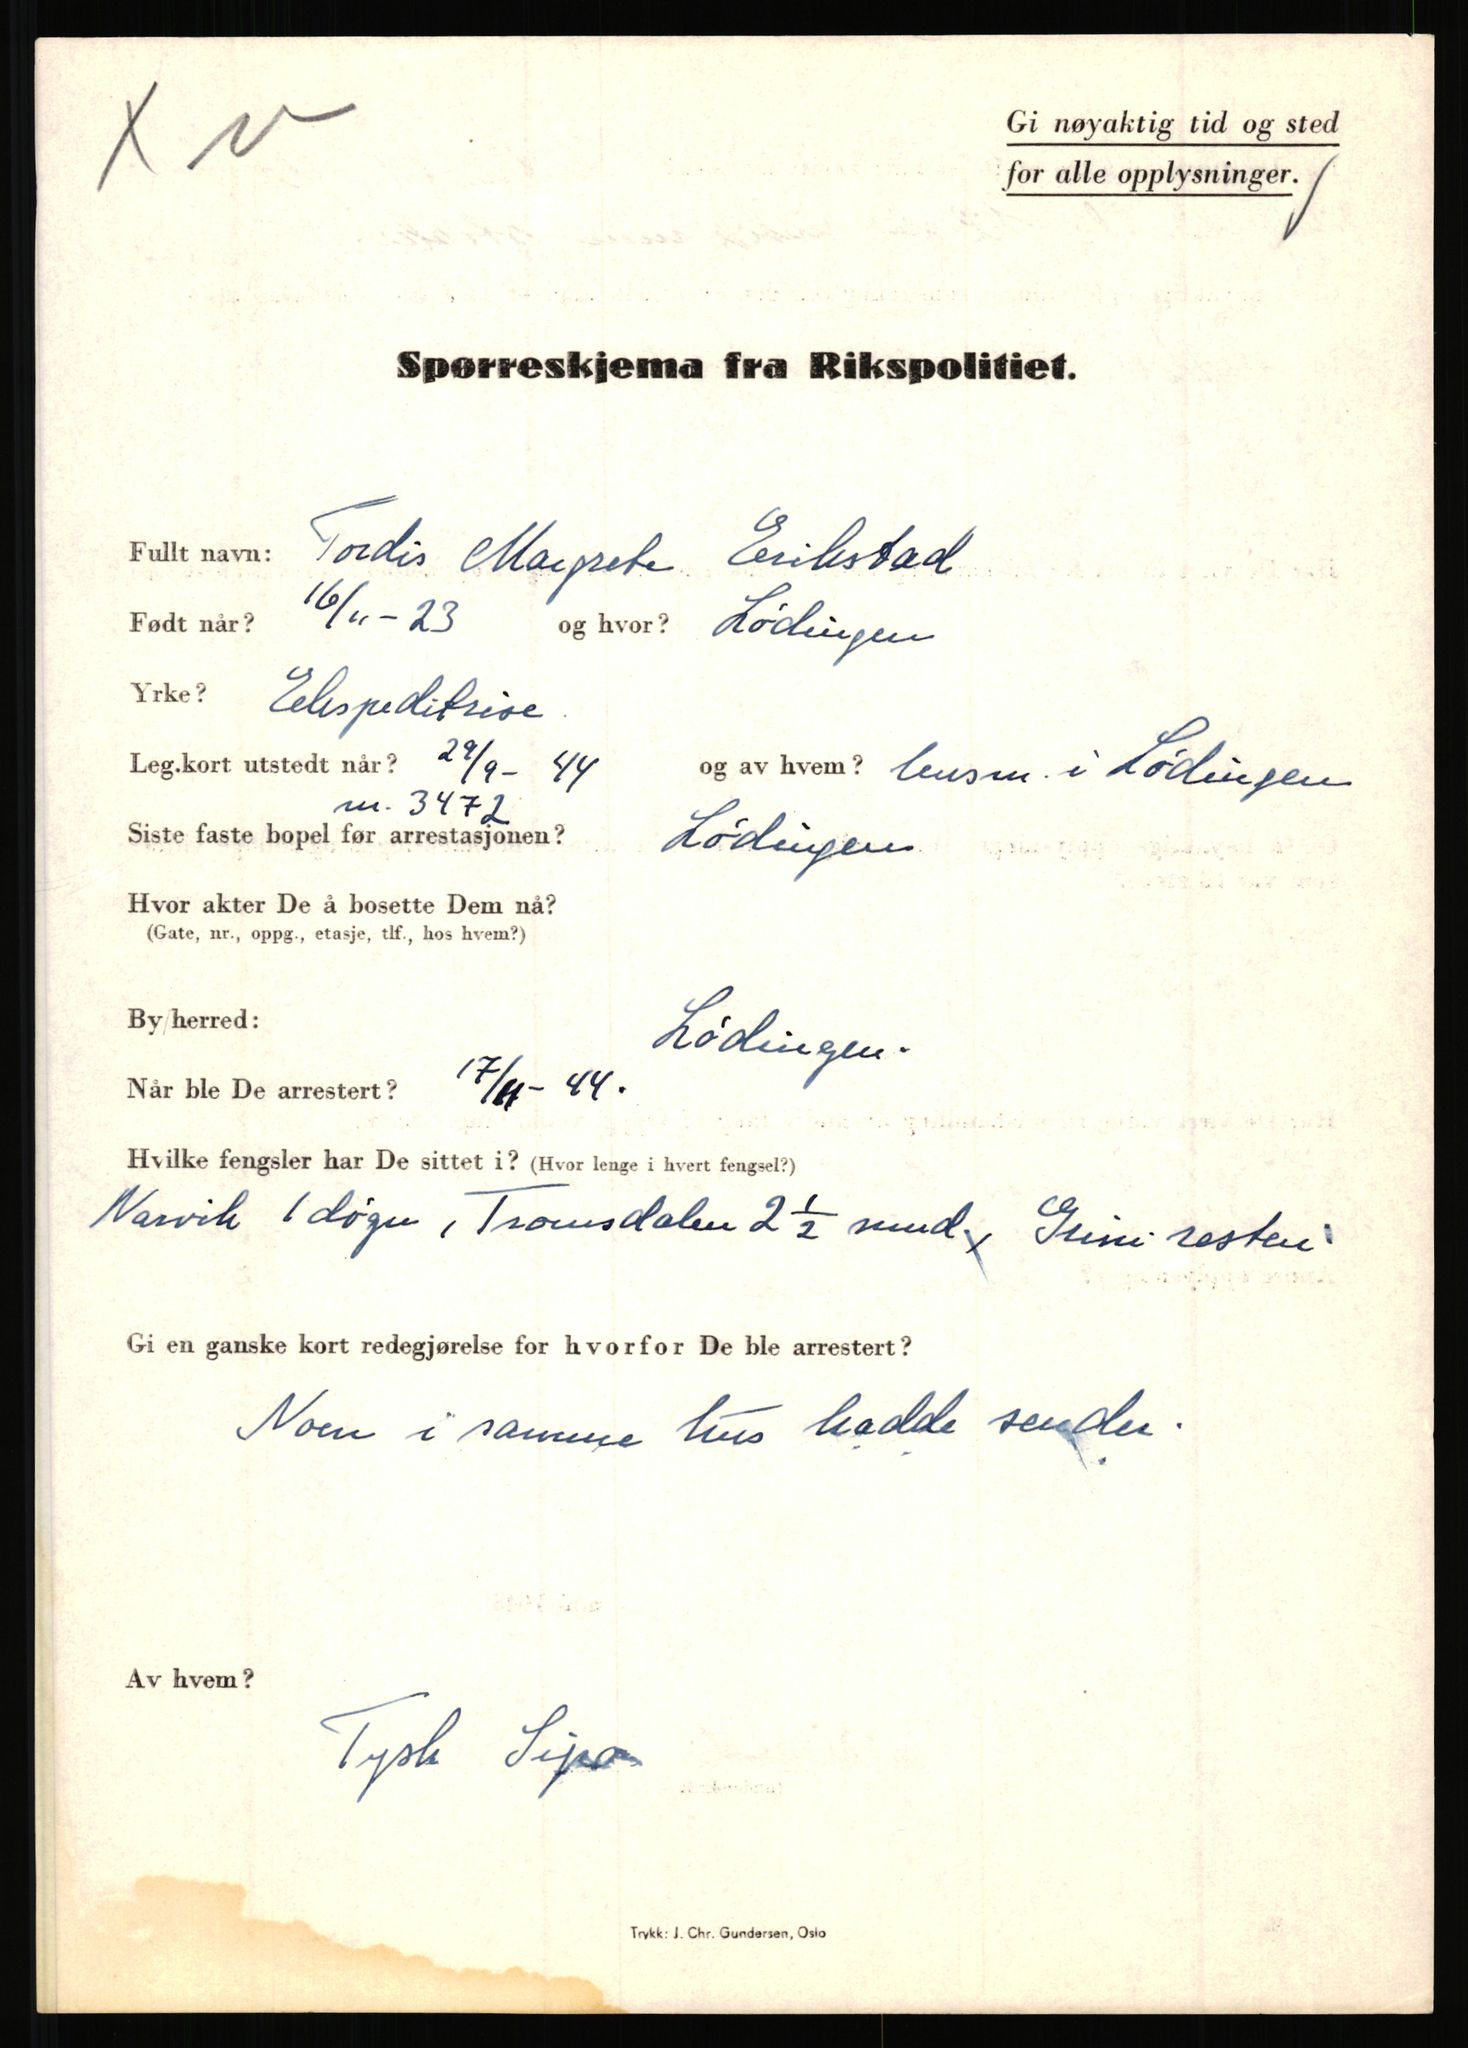 X V
Gi nøyaktig tid og sted
for alle opplysninger.
Spørreskjema fra Rikspolitiet.
Fullt navn: Tordis Margrete Erikstad
Født når? 16/11-23 og hvor? Lødingen
Yrke? Ekspeditrise
Leg.kort utstedt når? 29/9-44 og av hvem? lensm. i Lødingen
nr. 3472
Siste faste bopel før arrestasjonen? Lødingen
Hvor akter De å bosette Dem nå?
(Gate, nr., oppg., etasje, tlf., hos hvem?)
By/herred: Lødingen.
Når ble De arrestert? 17/11-44.
Hvilke fengsler har De sittet i? (Hvor lenge i hvert fengsel?)
Narvik 1 døgn, Tromsdalen 2 1/2 mnd, Grini resten
Gi en ganske kort redegjørelse for hvorfor De ble arrestert?
Noen i samme hus hadde sender.
Av hvem?
Tysk Sipo
Trykk: J. Chr. Gundersen, Oslo